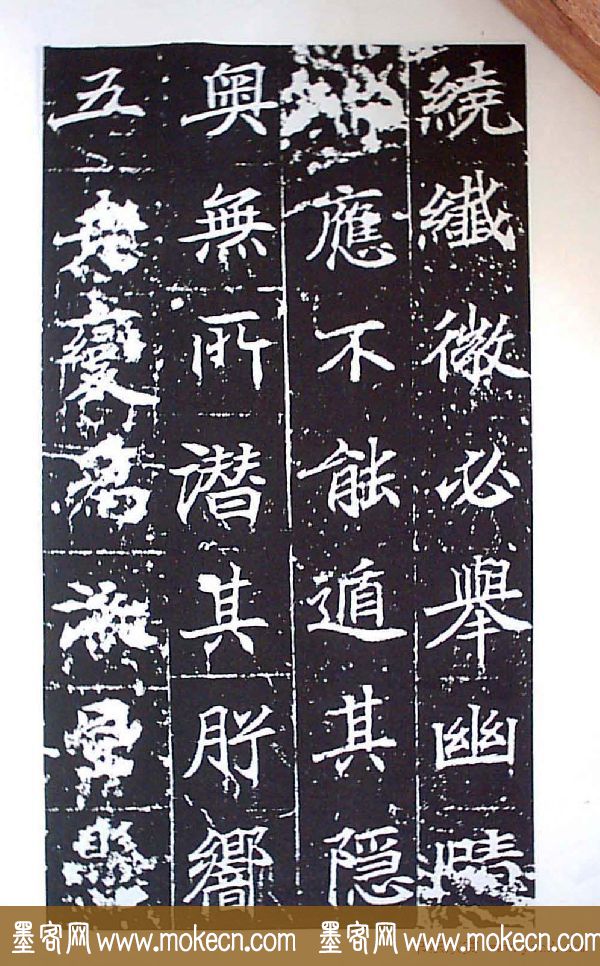 繞纖微必舉幽
應不能遁其隱
奧無所譛其肸嚮
五 變為
墨客网 www.mokecn.com 墨客网 www.mokecn.com